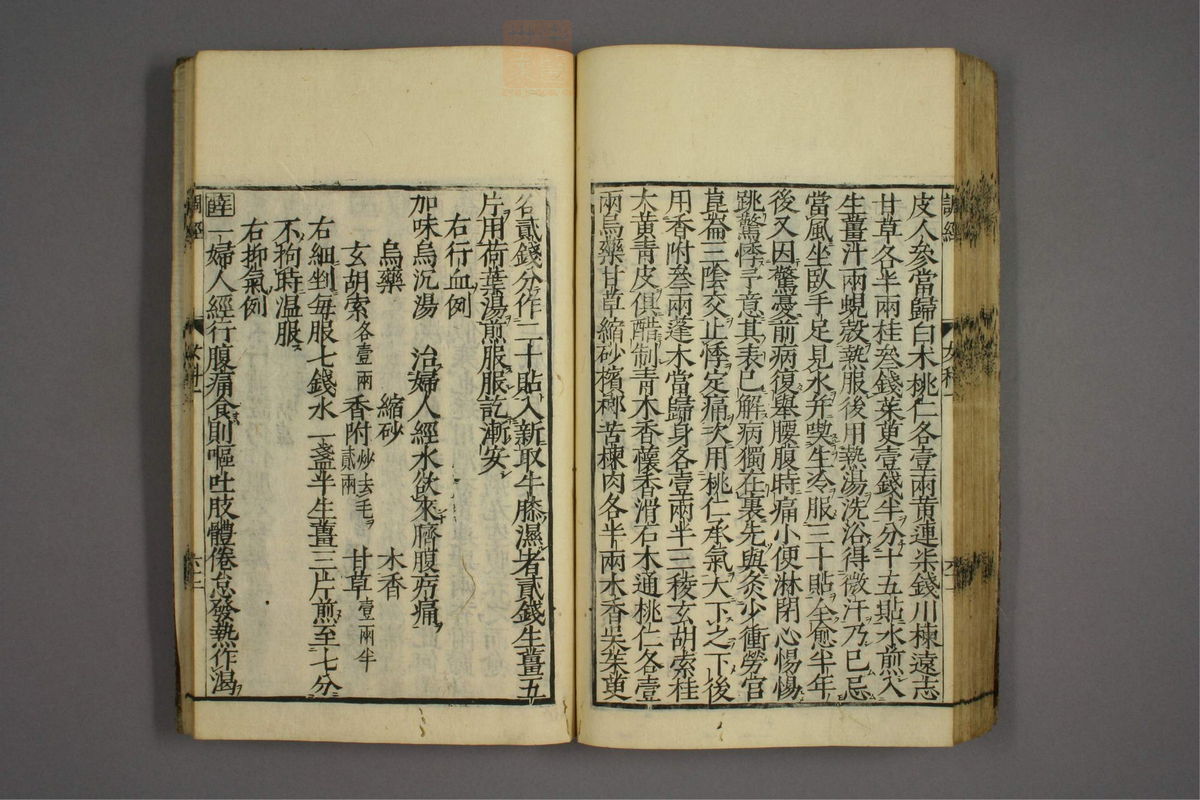 皮人參當歸白木桃仁各壹兩黃連柒錢川楝遠志
甘草各半兩桂叁錢茱萸壹錢半分十五貼水煎入
生薑汁兩蜆殼熱服後用熱湯洗浴得微汗乃已忌
當風坐臥手足見水并喫生冷服三十貼全愈半年
後又因驚憂前病復舉腰腹時痛小便淋閉心惕惕
跳驚悸予意其表已解病獨在裏先與灸少衝勞宮
崑崙三陰交止悸定痛次用桃仁承氣大下之下後
用香附叁兩蓬木當歸身各壹兩半三稜玄胡索桂
大黃青皮俱醋制青木香蘹香滑石木通桃仁各壹
兩烏藥甘草縮砂檳榔苦楝肉各半兩木香吳茱萸
各貳錢分作二十貼入新取牛膝濕者貳錢生薑五
片用荷葉湯煎服服訖漸安
右行血例
加味烏沉湯 治婦人經水欲來臍腹㽲痛
烏藥 縮砂 木香
玄胡索各壹兩 香附炒去毛貳兩 甘草壹兩半
右細剉每服七錢水一盞半生薑三片煎至七分
不拘時溫服
右抑氣例
一婦人經行腹痛食則嘔吐肢體倦怠發熱作渴
調經
女科